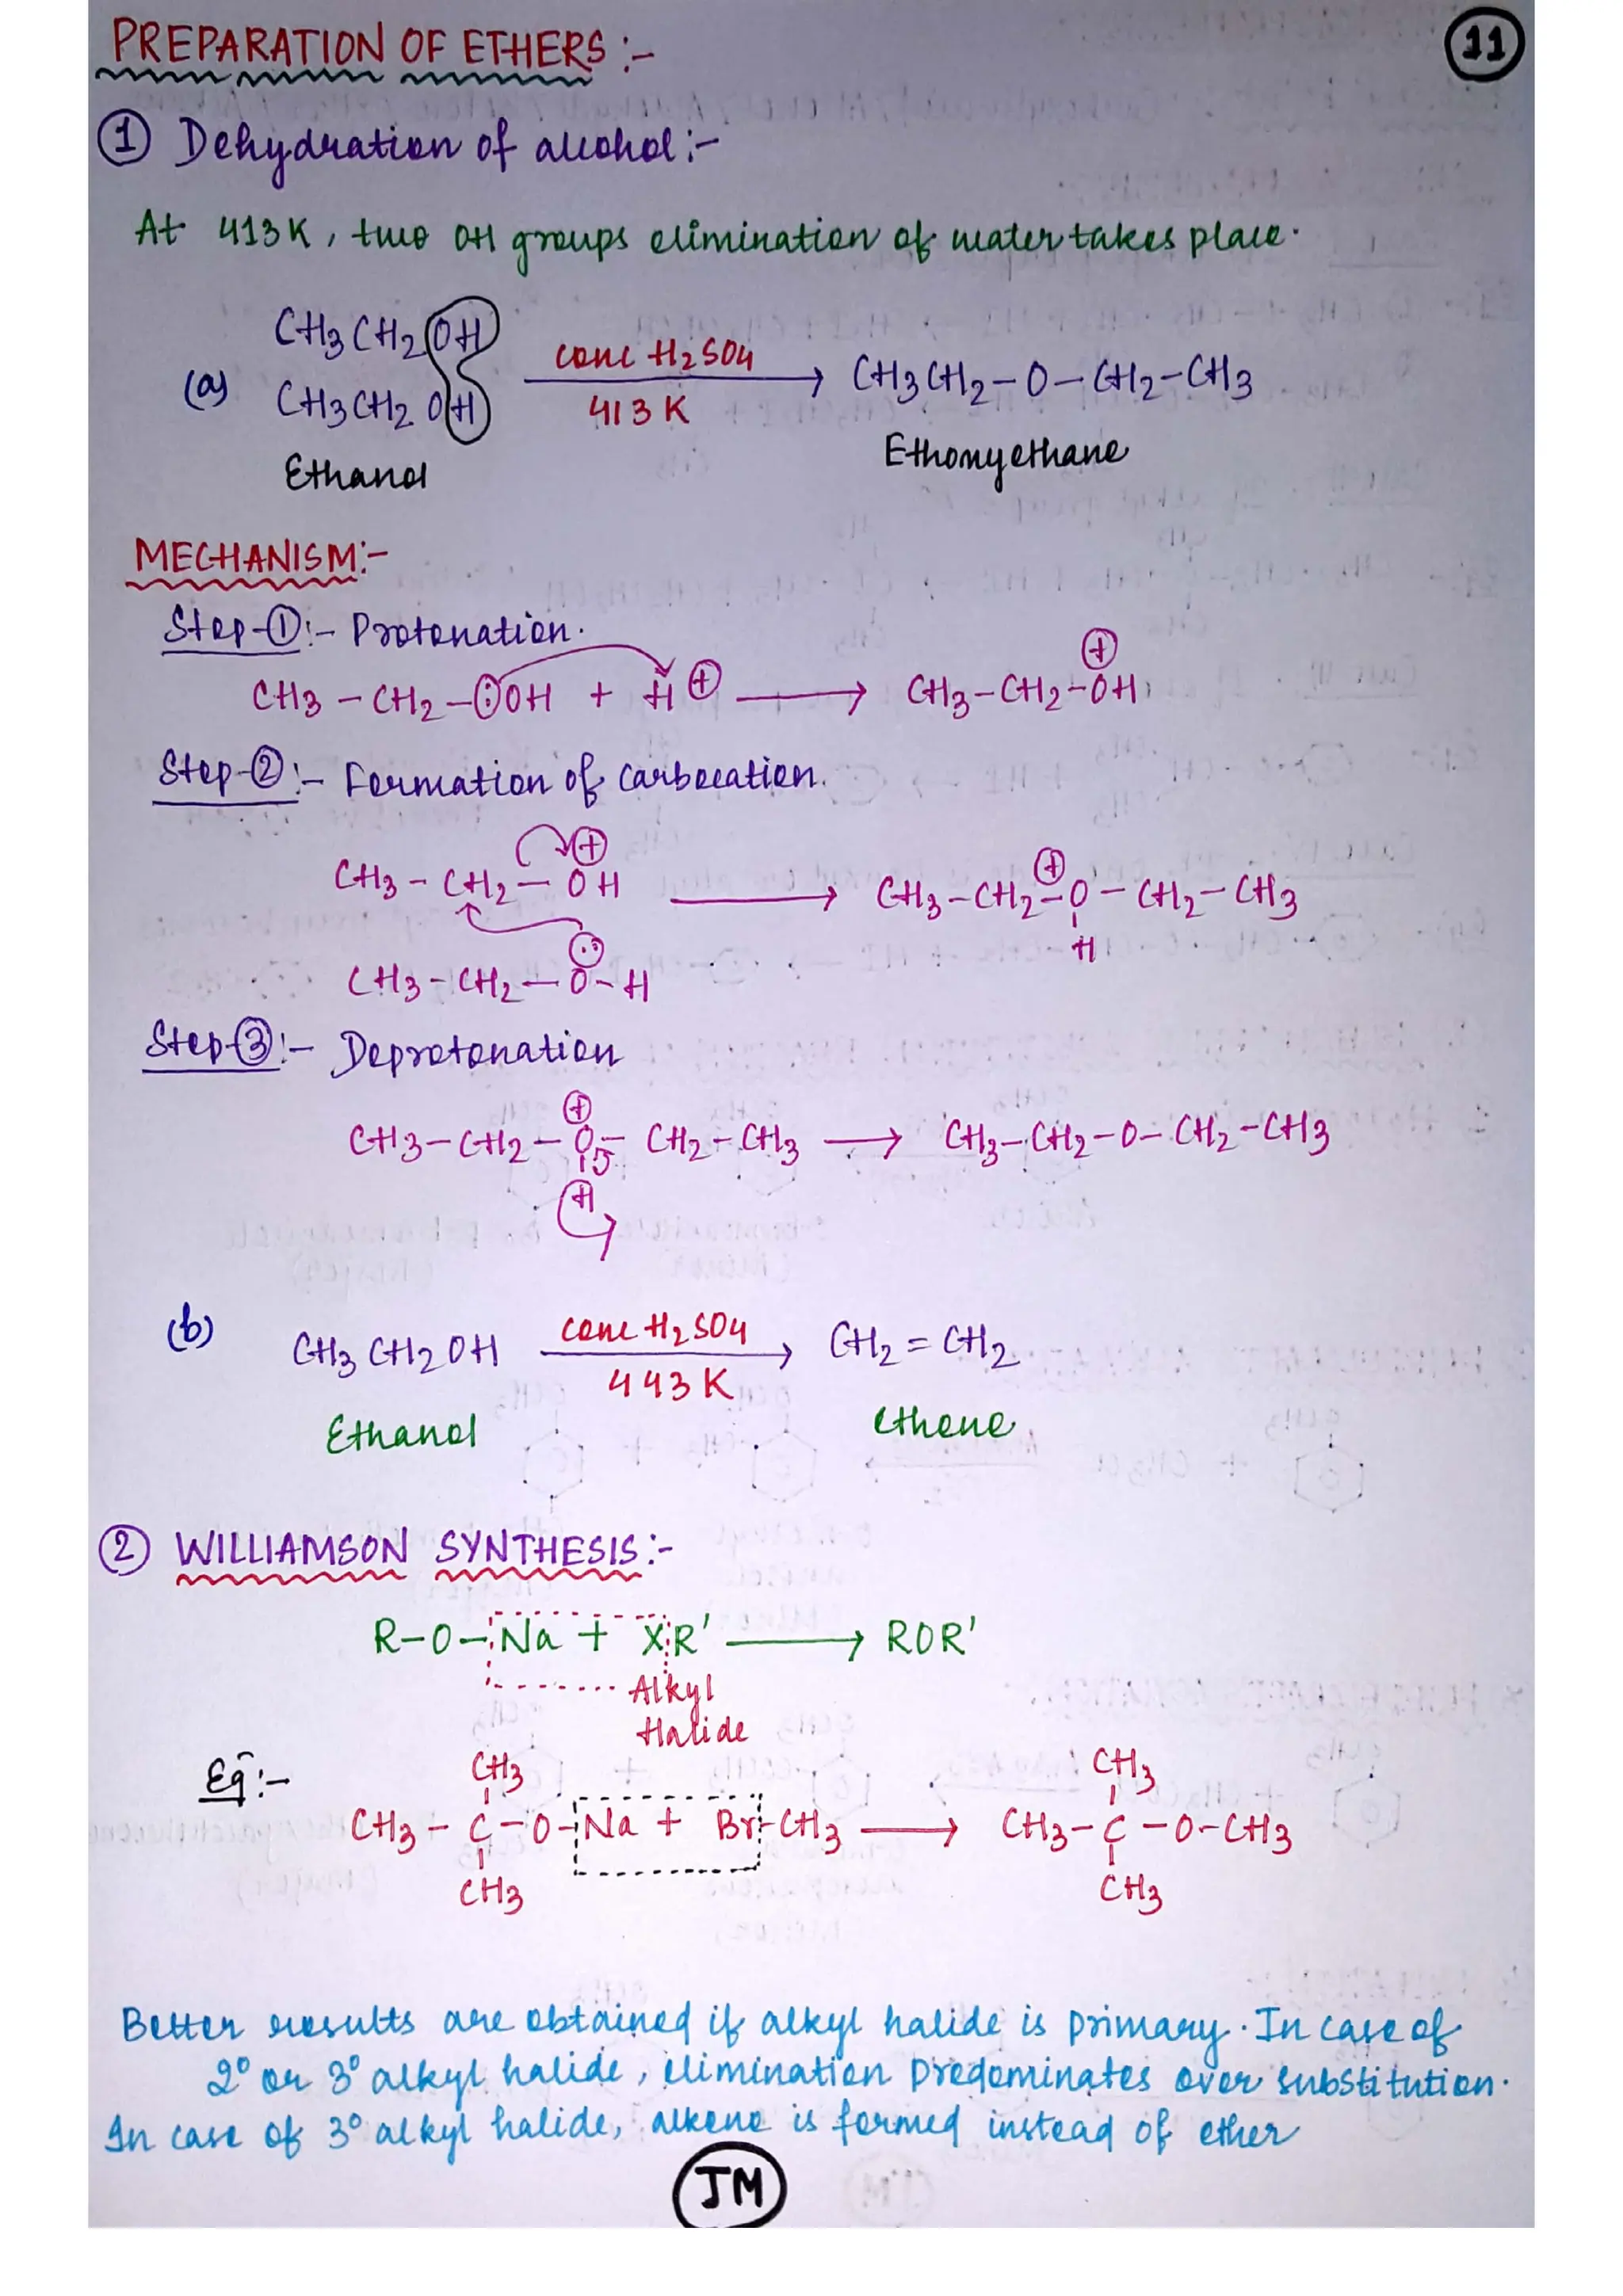 PREPARATION OF ETHERS :-
11
① Dehydration of alcohol :-
At 413K, two OH groups elimination of water takes place.
CH3CH2OH
(a) CH3CH2OH conc H2SO4 413 K → CH3CH2-O-CH2-CH3
Ethanol Ethoxyethane
MECHANISM:-
Step-①:- Protonation.
CH3 - CH2 - ÖOH + H⊕ → CH3-CH2-OH ⊕
Step-②:- Formation of carbocation.
CH3 - CH2 - OH ⊕ → CH3-CH2-O-CH2-CH3 ⊕
H
CH3-CH2-Ö-H
Step-③:- Deprotonation
⊕
CH3-CH2-O-CH2-CH3 → CH3-CH2-O-CH2-CH3
H
(b) CH3CH2OH conc H2SO4 443 K → CH2 = CH2
Ethanol ethene
② WILLIAMSON SYNTHESIS :-
R-O-Na + XR' → ROR'
Alkyl
Halide
Eg :-
CH3 CH3
CH3 - C - O - Na + Br-CH3 → CH3 - C - O-CH3
CH3 CH3
Better results are obtained if alkyl halide is primary. In case of
2° or 3° alkyl halide, elimination predominates over substitution.
In case of 3° alkyl halide, alkene is formed instead of ether
JM